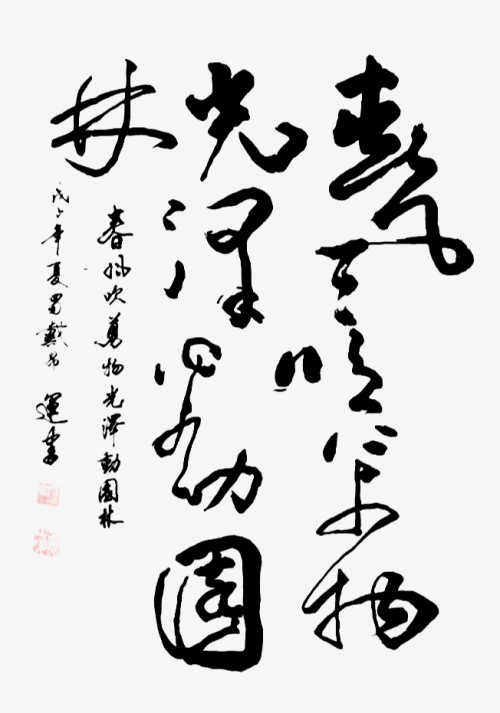 春風吹萬物
光澤動園
林
春風吹萬物光澤動園林
戊子年夏